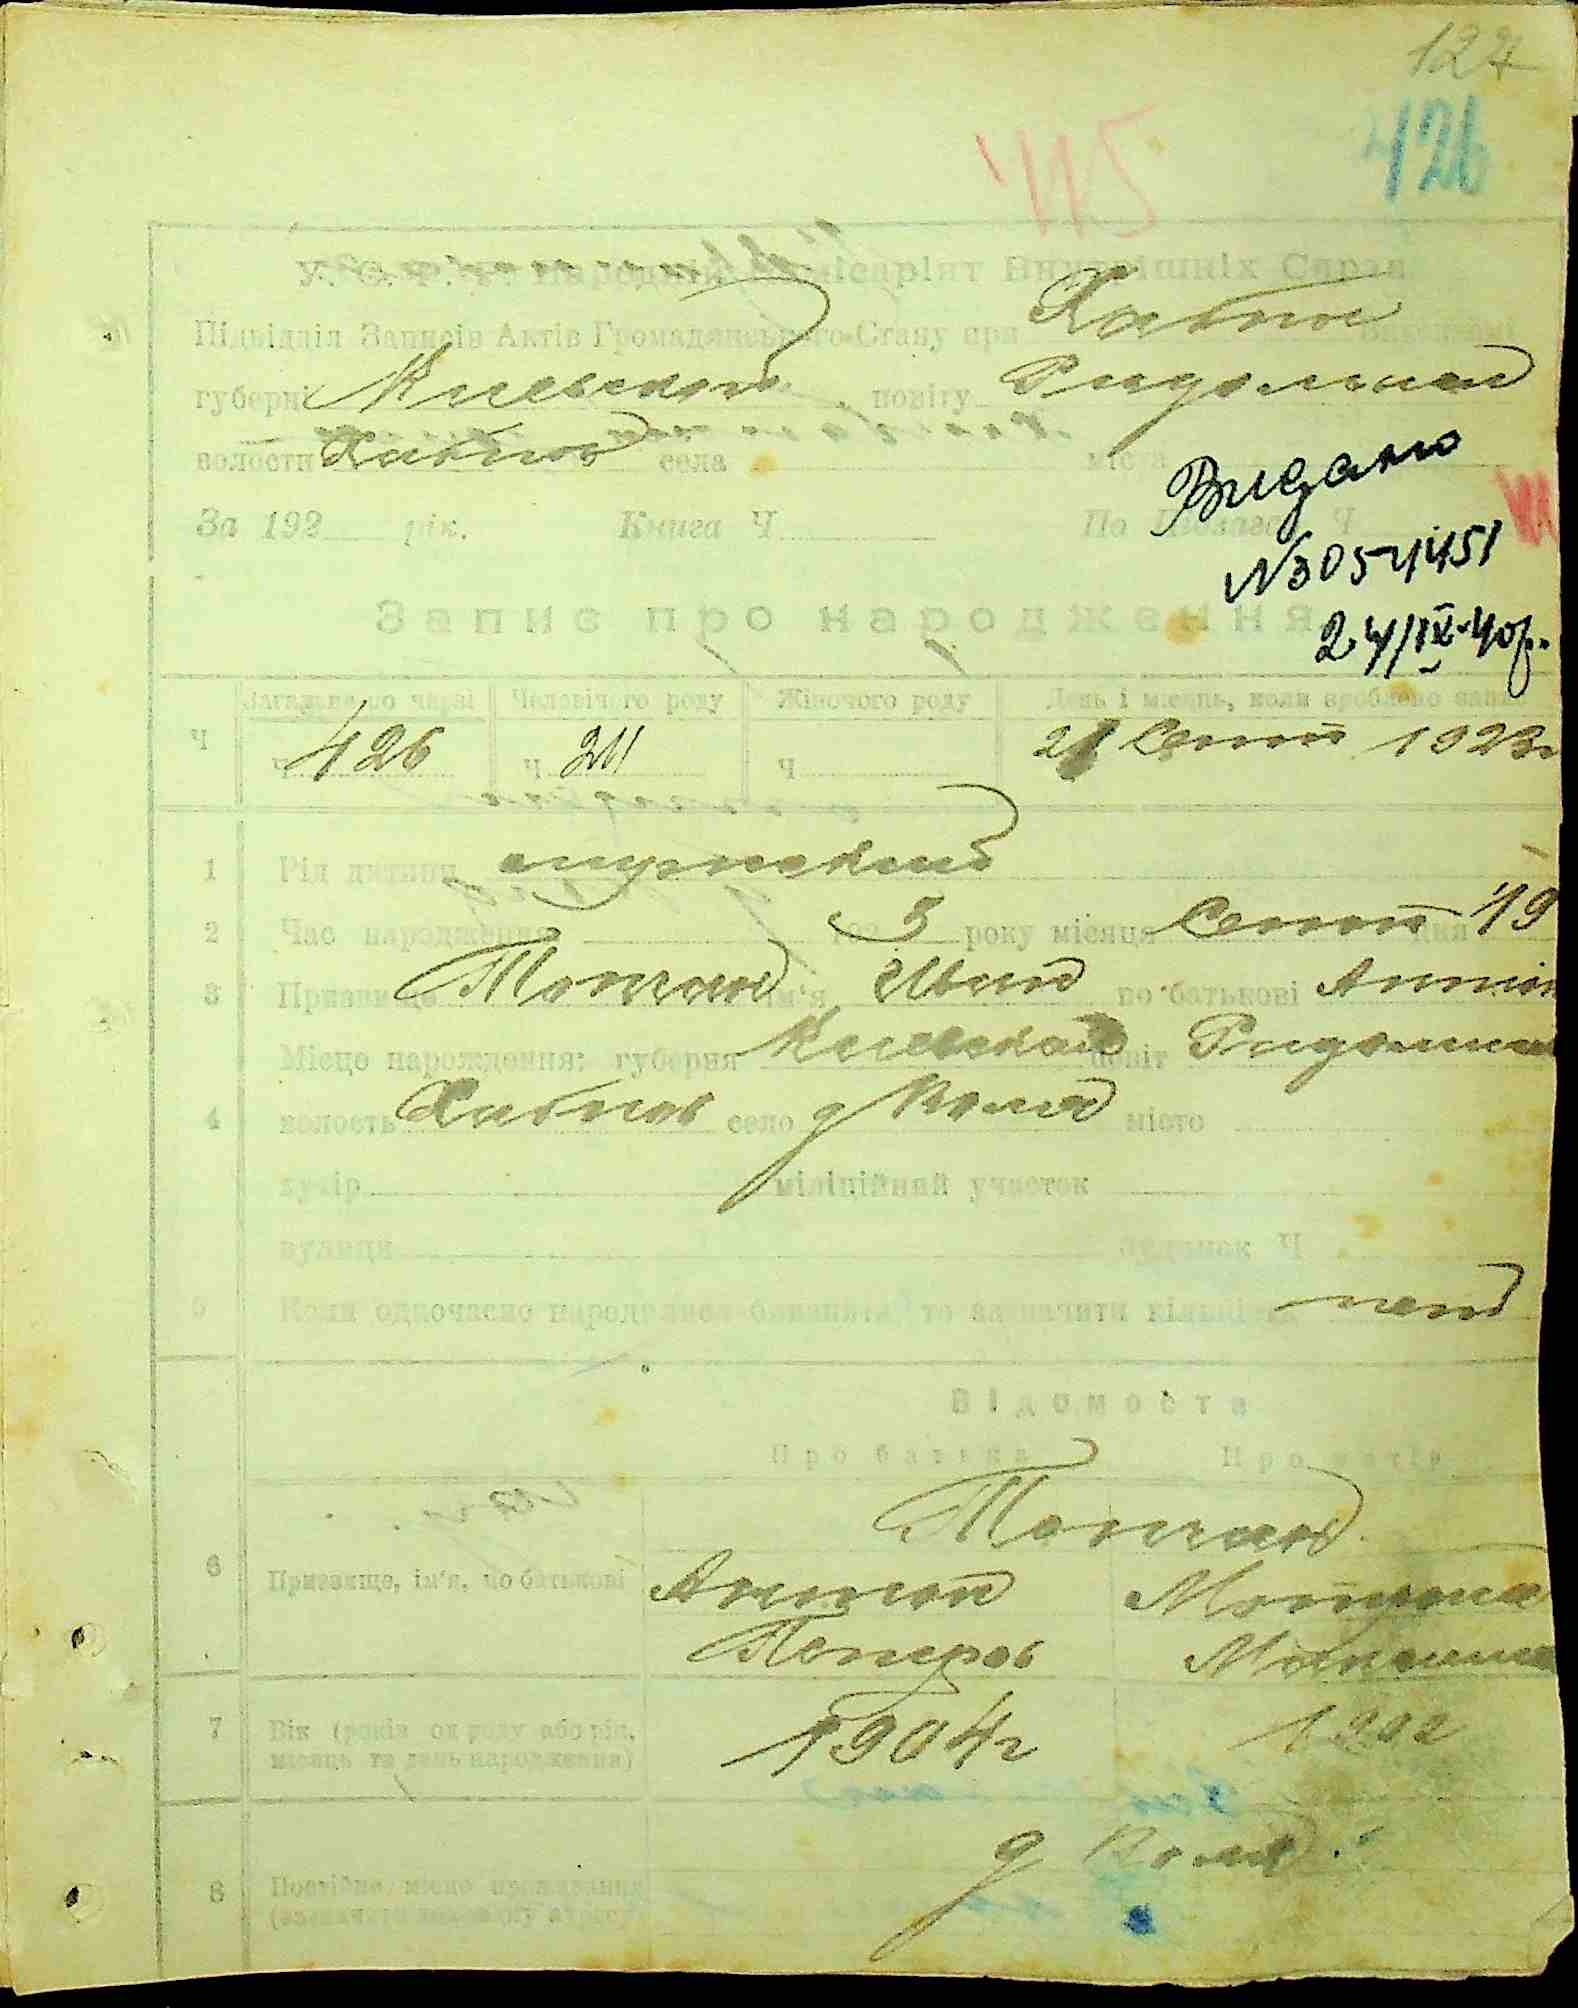 127
426
115
У. С. Р. Р. Народній Комісаріят Внутрішніх Справ
Підвідділ Записів Актів Громадянського Стану при Хабное Виконкомі
губерні Киевской повіту
волости Хабное села міста
Видано
За 192 рік. Книга Ч По Ч
24/IX-40р.
Запис про народження
Загальне по черзі Чоловічого роду Жіночого роду День і місяць, коли зроблено запис
Ч Ч 426 Ч 211 Ч Сент 1923г
1 Рід дитини мужской
2 Час народження 192 3 року місяця Сент дня 19
3 Призвище ім'я Иван по батькові Антон
Місце нарождення: губерня Киевская повіт
4 волость Хабное село д Воля місто
хутір міліційний участок
вулиця будинок Ч
5 Коли одночасно народилися близнята, то зазначити кількість нет
Відомости
Про батька Про матір
6 Призвище, ім'я, по батькові Антон
Петров
7 Вік (років од роду або рік, 1904г
місяць та день народження)
д Воля
8 Постійне місце проживання